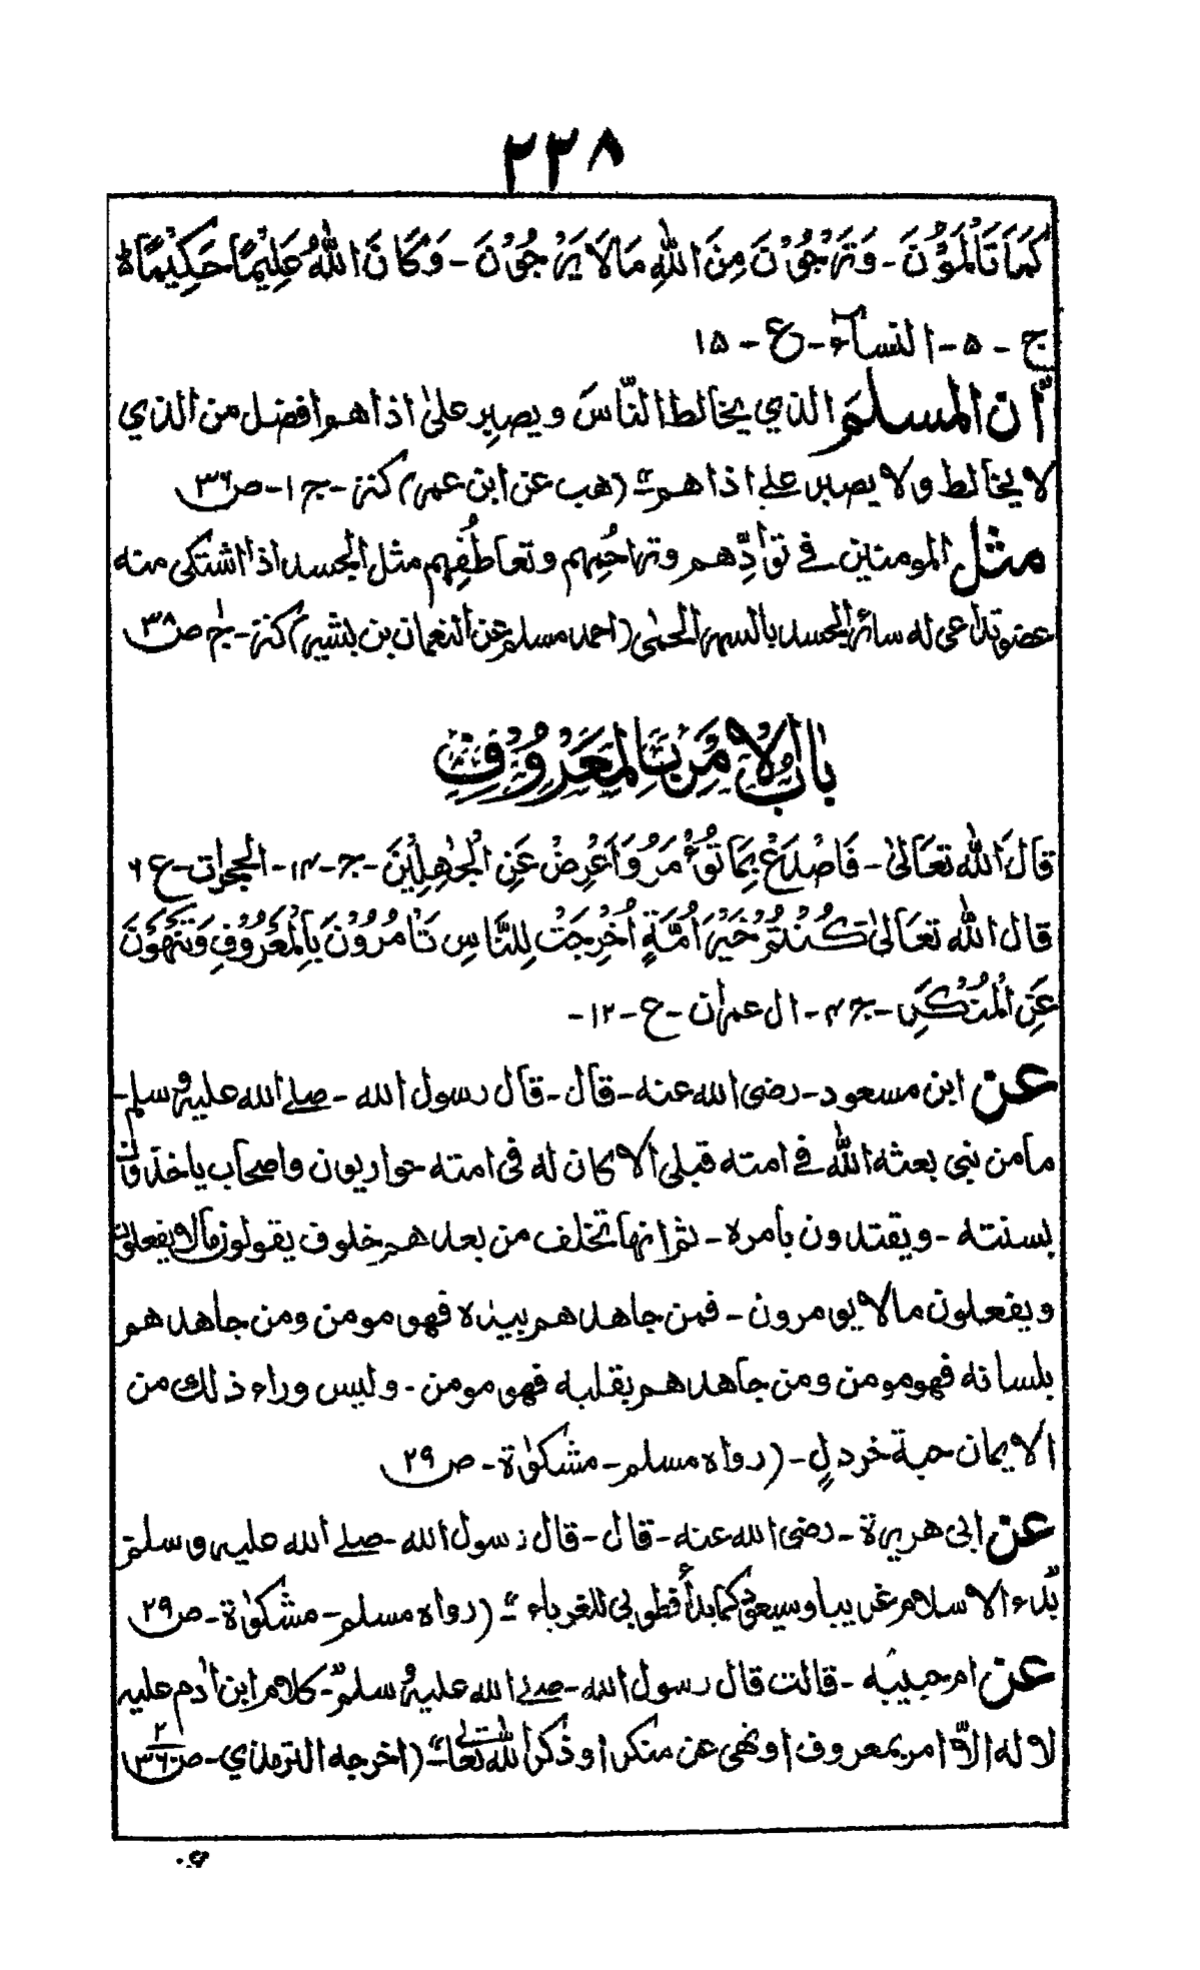 ٢٣٨
كَمَا تَأْلَمُوْنَ - وَتَرْجُوْنَ مِنَ اللّٰهِ مَا لَا يَرْجُوْنَ - وَكَانَ اللّٰهُ عَلِيْمًا حَكِيْمًا ط
ج - ٥ - النسآء - ع - ١٥
أنّ المسلمَ الذي يخالط النّاسَ ويصبِر علىٰ اذاهم افضل من الذي
لا يخالط ولا يصبر علے اذاهم" (هب عن ابن عمر) كنز - ج ١ - ص ٣٦
مثل المومنين في توادِّهم وتراحُمِهم وتعاطُفِهم مثل الجسد اذا اشتكى منه
عضو تداعى له سائر الجسد بالسهر الحمىٰ (احمد مسلم عن النعمان بن بشير) كنز - ج ١ ص ٣٨
بابُ الْاَمْرِ بِالْمَعْرُوْفِ
قَالَ اللّٰه تَعَالىٰ - فَاصْدَعْ بِمَا تُؤْمَرُ وَاَعْرِضْ عَنِ الْجٰهِلِيْنَ - ج - ١٤ - الحجرات - ع ٦
قال اللّٰه تعَالىٰ كُنْتُمْ خَيْرَ اُمَّةٍ اُخْرِجَتْ لِلنَّاسِ تَأْمُرُوْنَ بِالْمَعْرُوْفِ وَتَنْهَوْنَ
عَنِ الْمُنْكَرِ - ج ٤ - ال عمران - ع - ١٢ -
عن ابن مسعود - رضى الله عنه - قال - قال رسول الله - صلے الله عليه وسلم -
ما من نبي بعثه اللّٰه في امته قبلي الا كان له فى امته حواريون واصحاب ياخذون
بسنته - ويقتدون بامره - ثم انها تخلف من بعدهم خلوف يقولون مالا يفعلون
ويفعلون مالا يومرون - فمن جاهدهم بيده فهو مومن ومن جاهدهم
بلسانه فهو مومن ومن جاهدهم بقلبه فهو مومن - وليس وراء ذلك من
الايمان حبة خردلٍ - (رواه مسلم - مشكوٰة - ص ٢٩
عن ابى هريرة - رضى الله عنه - قال - قال رسول الله - صلے الله عليه وسلم
بُدء الاسلام غريبا وسيعود كما بدأ فطوبى للغرباء" (رواه مسلم - مشكوٰة - ص ٢٩
عن ام حبيبه - قالت قال رسول الله - صلے الله عليه وسلم - كلام ابن اٰدم عليه
لا له الاّ امر بمعروف او نهى عن منكر او ذكر اللّٰه تعالىٰ" (اخرجه الترمذي - ص ٢/٣٦